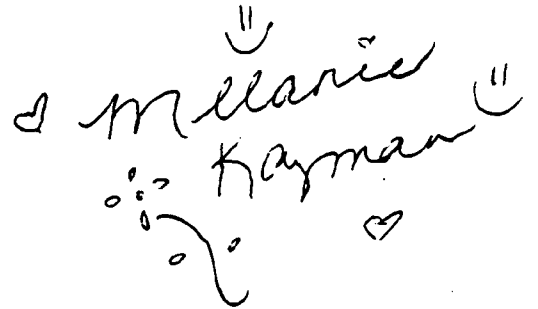 Melanie
Kayman